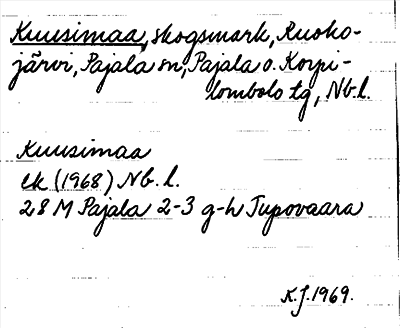 Kuusimaa, skogsmark, Ruoko-
järvi, Pajala sn, Pajala o. Korpi-
lombolo tg, Nb.l.
Kuusimaa
ek (1968) Nb. l.
28 M Pajala 2-3 g-h Jupovaara
K.J. 1969.